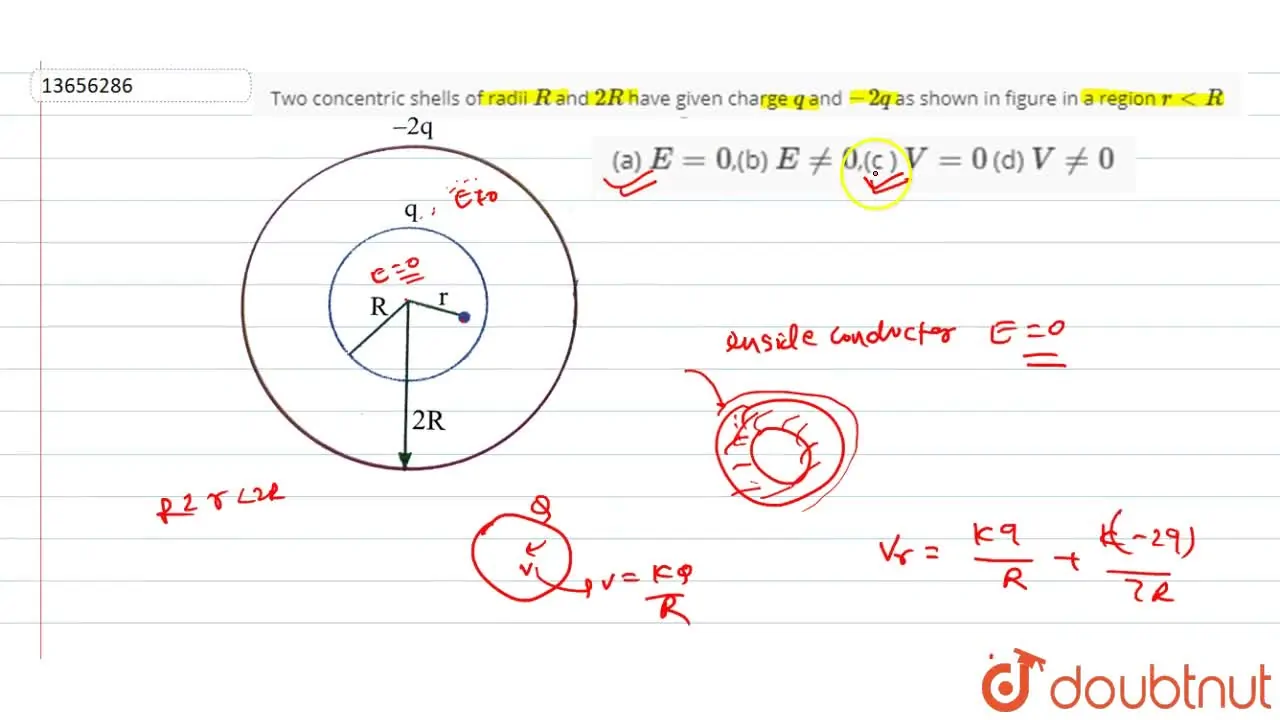 13656286
Two concentric shells of radii R and 2R have given charge q and −2q as shown in figure in a region r < R
(a) E = 0,(b) E ≠ 0,(c ) V = 0 (d) V ≠ 0
–2q
E≠0
q
E=0
R
r
2R
inside conductor E=0
R < r < 2R
Q
V
V = KQ/R
Vr = Kq/R + K(-2q)/2R
doubtnut